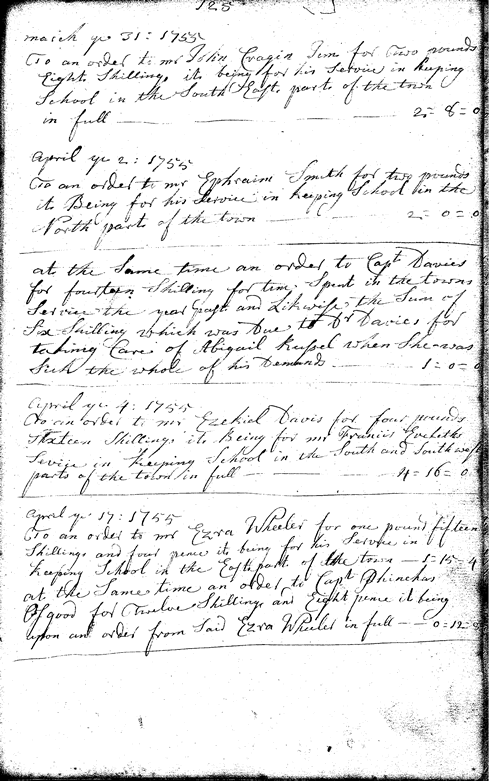 125
march ye 31: 1755
To an order to mr John Cragin Jun for two pounds
Eight Shillings its being for his Service in keeping
School in the South East part of the town
in full — 2=8=0
April ye 2: 1755
To an order to mr Ephraim Smith for two pounds
it Being for his Service in keeping School in the
North part of the town — 2=0=0
at the Same time an order to Capt Davies
for fourteen Shilling for time Spent in the towns
Service the year past and Likwise the Sum of
Six Shilling which was Due to Dr Davies for
taking Care of Abigail Russel when She was
Sick the whole of his Demands — 1=0=0
April ye 4: 1755
To an order to mr Ezekiel Davis for four pounds
Sixteen Shillings its Being for mr Francis
Service in keeping School in the South and South west
parts of the town in full — 4=16=0
April ye 17: 1755
To an order to mr Ezra Wheeler for one pound fifteen
Shillings and four pence it being for his Service in
keeping School in the East part of the town — 1=15=4
at the Same time an order to Capt Phinehas
Osgood for Twelve Shillings and Eight pence it being
upon an order from Said Ezra Wheeler in full — 0=12=8